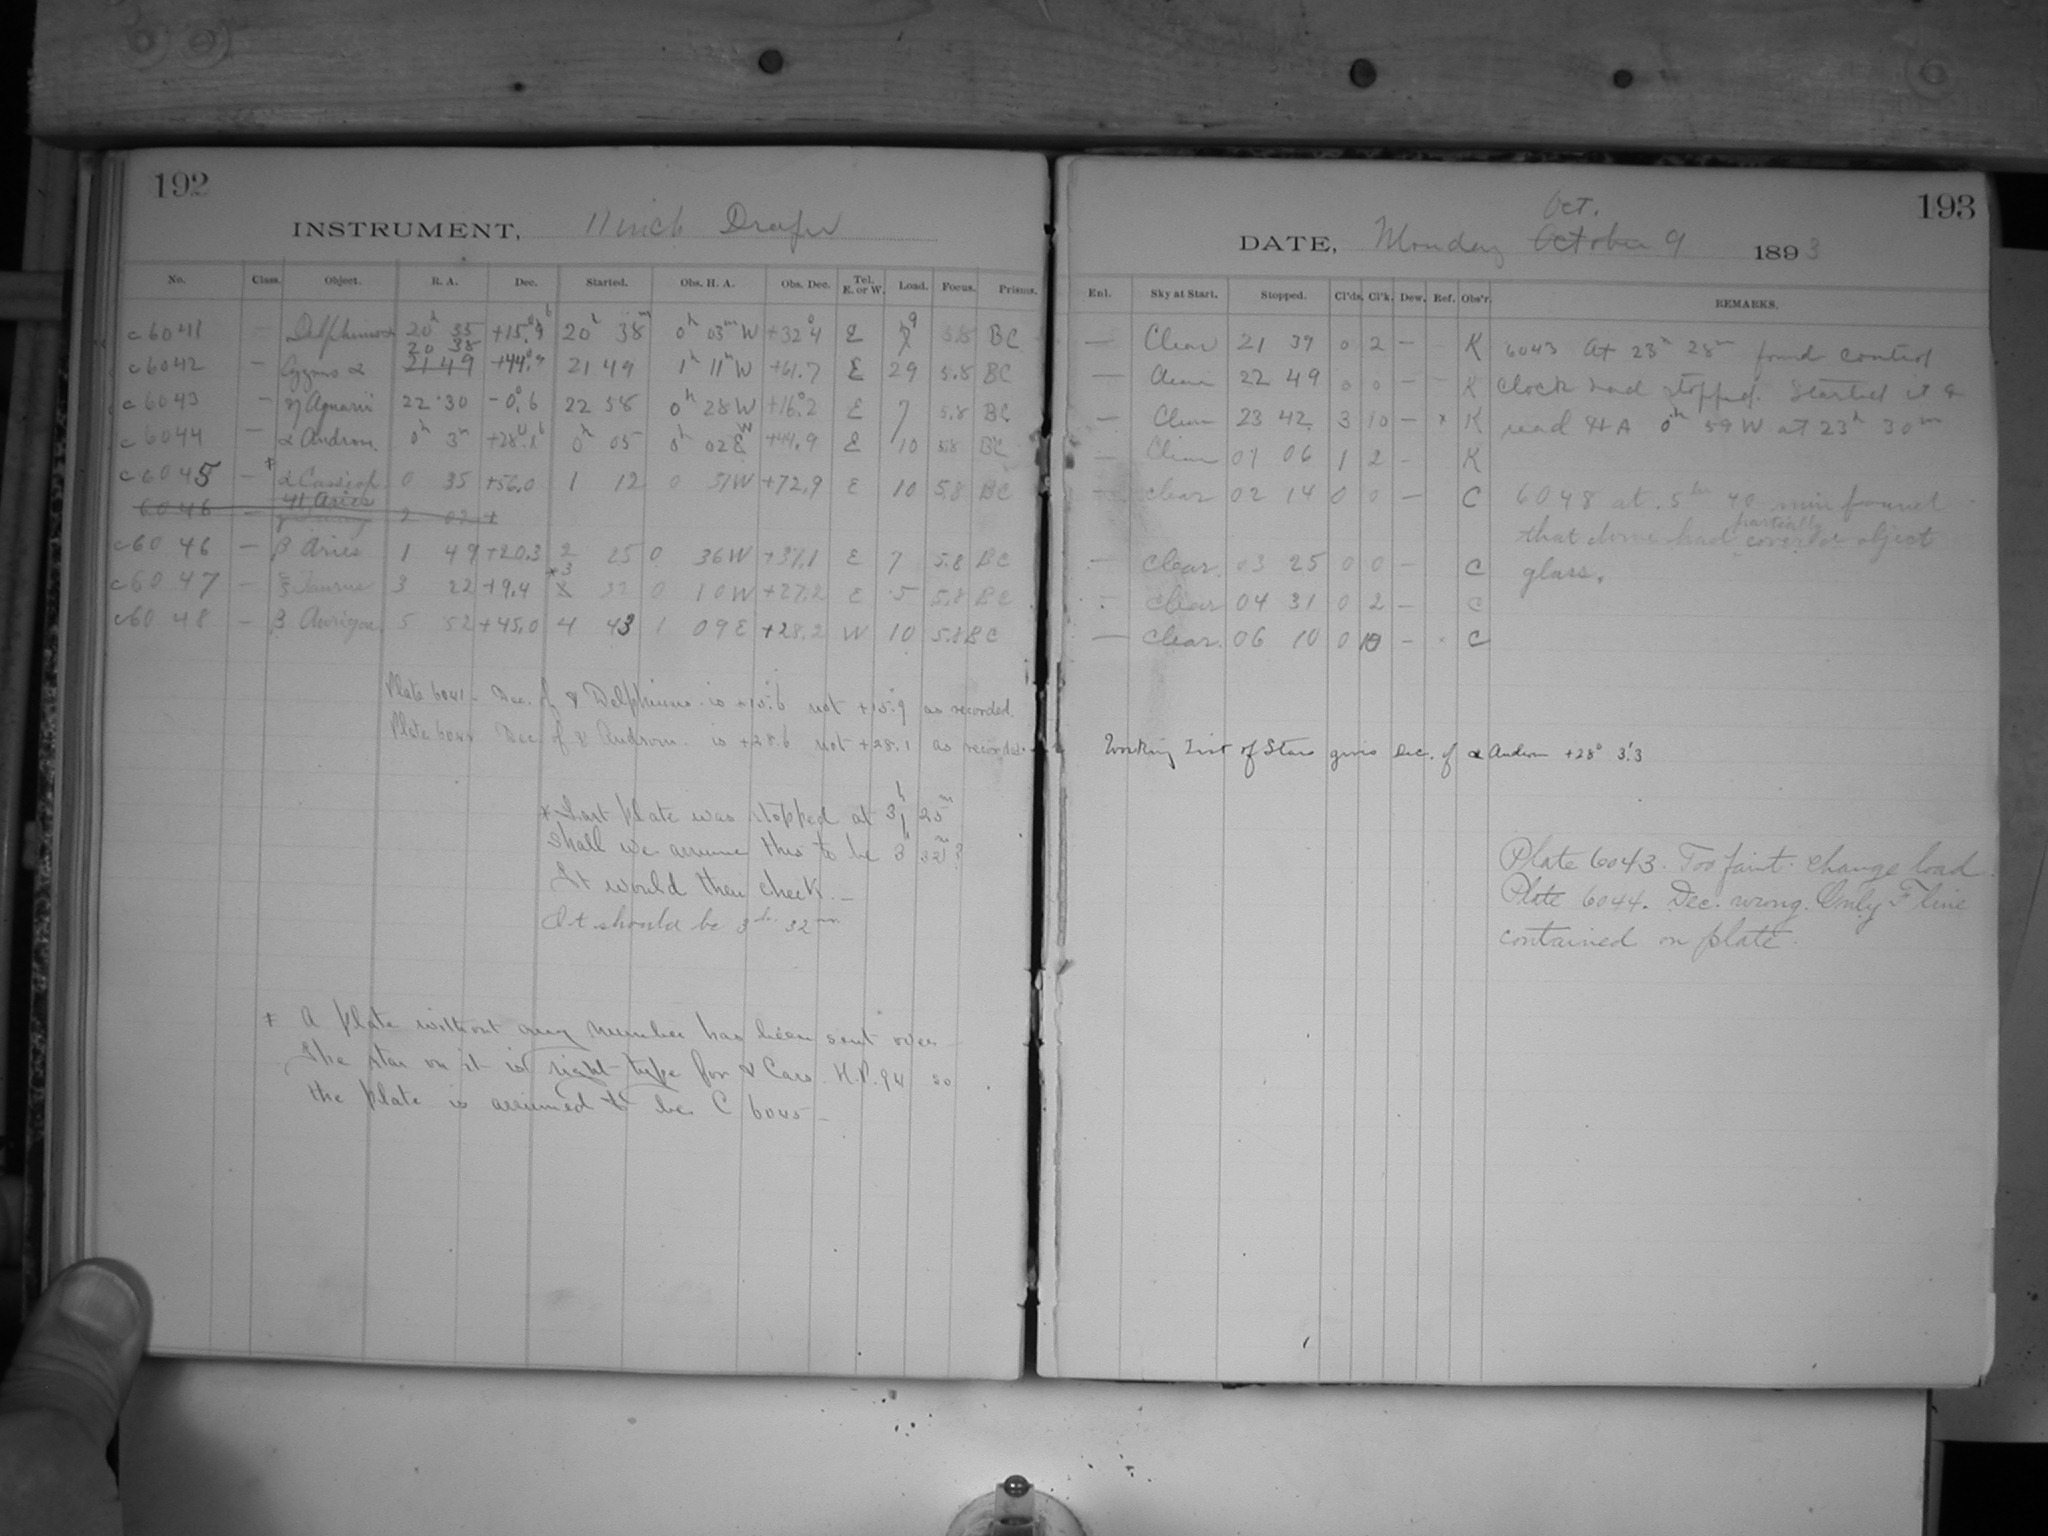 192
INSTRUMENT, 11 inch Draper
No. Class. Object. R. A. Dec. Started. Obs. H. A. Obs. Dec. Tel. E. or W. Load. Focus. Prisms.
c6041 — Delphinus α 20h 35 +15.°9 6 20h 38m 0h 03m W +32°4 E 9 5.8 BC
20 38
c6042 — Cygnus α 21 49 +44.°9 21 49 1h 11m W +61.7 E 29 5.8 BC
c6043 — η Aquarii 22 30 -0.°6 22 58 0h 28 W +16.°2 E 7 5.8 BC
c6044 — α Androm. 0h 3m +28.°1 6 0h 05 0h 02 E W +44.9 E 10 5.8 BC
c6045 — ‡ α Cassiop. 0 35 +56.0 1 12 0 37 W +72.9 E 10 5.8 BC
6046 — 41 Aries 2 02 +
c6046 — β Aries 1 49 +20.3 2 25 0 36 W +37.1 E 7 5.8 BC
c6047 — ξ Taurus 3 22 +9.4 *3 32 0 10 W +27.2 E 5 5.8 BC
c6048 — β Aurigae 5 52 +45.0 4 43 1 09 E +28.2 W 10 5.8 BC
Plate 6041 - Dec. of α Delphinus is +15.°6 not +15.°9 as recorded.
Plate 6044 Dec. of α Androm. is +28.6 not +28.1 as recorded.
* Last plate was stopped at 3h 25m
Shall we assume this to be 3h 32m?
It would then check. —
It should be 3 hr. 32 m.
‡ A plate without any number has been sent over
The star on it is right type for α Cass. H.P. 94 so
the plate is assumed to be C 6045 —
193
Oct.
DATE, Monday October 9 1893
Enl. Sky at Start. Stopped. Cl'ds. Cl'k. Dew. Ref. Obs'r. REMARKS.
— Clear 21 39 0 2 — K 6043 At 23h 28m found control
— Clear 22 49 0 0 — — K clock had stopped. Started it &
— Clear 23 42 3 10 — * K read HA 0h 59 W at 23h 30m
— Clear 01 06 1 2 — K
— Clear 02 14 0 0 — C 6048 at 5 hr 40 min found
that dome had partially covered object
— Clear. 03 25 0 0 — C glass.
— Clear 04 31 0 2 — C
— Clear. 06 10 0 10 — C
Working List of Stars gives Dec. of α Androm +28° 3'.3
Plate 6043. Too faint. Change load.
Plate 6044. Dec. wrong. Only F line
contained on plate.